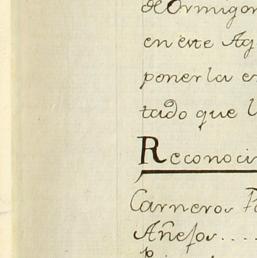 de Ormigon
en este Ag
poner la e
tado que l
Reconoci
Carneros P
Añejos....